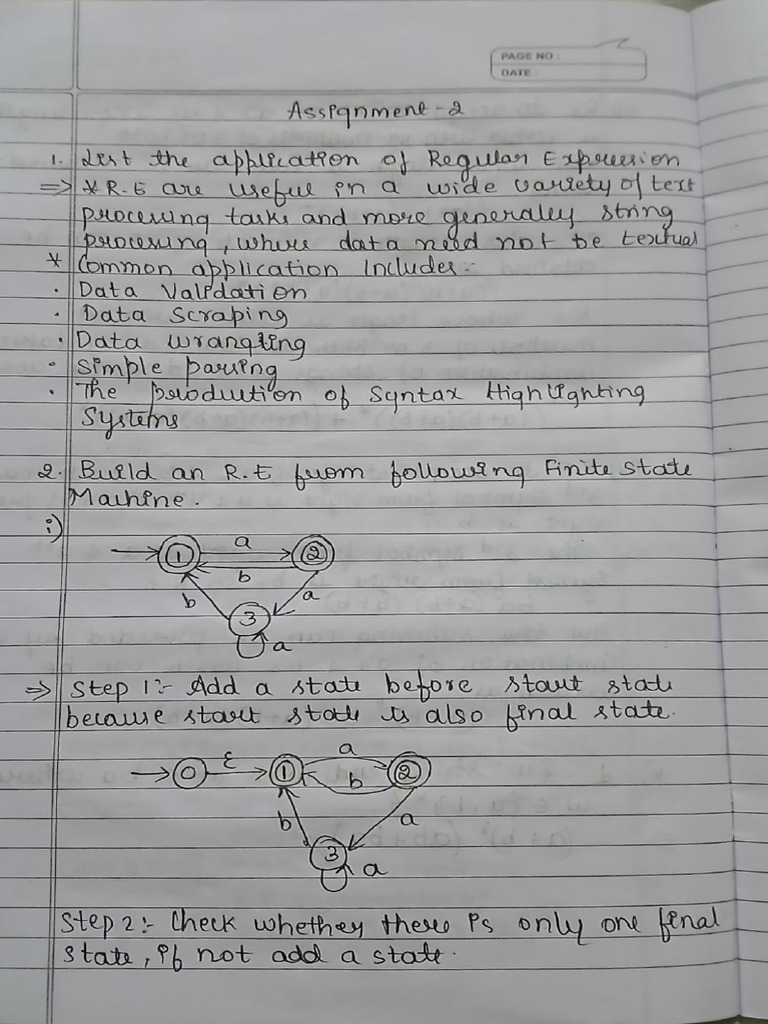 PAGE NO :
DATE :
Assignment - 2
1. List the application of Regular Expression
⇒ * R.E are useful in a wide variety of text
processing tasks and more generaley string
processing, where data need not be textual
* Common application Includes :-
· Data Validation
· Data Scraping
· Data wrangling
· Simple parsing
· The prodution of Syntax Highlighting
Systems
2. Build an R.E from following Finite State
Machine.
i)
→ 1 a 2
b
b a
3
a
⇒ Step 1 :- Add a state before start state
because start state is also final state.
→ 0 ε → 1 a 2
b
b a
3
a
Step 2 :- Check whether there is only one final
state, if not add a state.